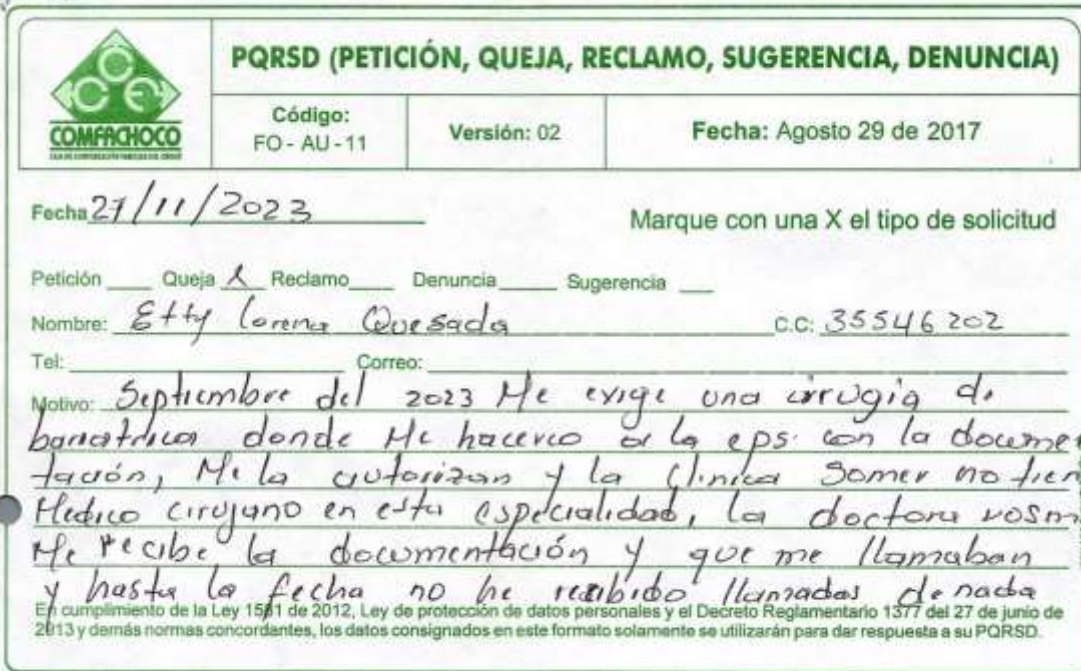 COMFACHOCO
PQRSD (PETICIÓN, QUEJA, RECLAMO, SUGERENCIA, DENUNCIA)
Código:
FO - AU - 11
Versión: 02
Fecha: Agosto 29 de 2017
Fecha 27/11/2023
Marque con una X el tipo de solicitud
Petición ____ Queja X Reclamo____ Denuncia_____ Sugerencia ___
Nombre: Etty Lorena Quesada C.C: 35546202
Tel: Correo:
Motivo: Septiembre del 2023 Me exige una cirugia de
bariatrica donde Me hacerco a la eps. con la documen
tación, Me la autorizan y la Clinica Somer no tien
Medico cirujano en esta especialidad, la doctora rosm
Me recibe la documentación y que me llamaban
y hasta la fecha no he recibido llamadas de nada
En cumplimiento de la Ley 1581 de 2012, Ley de protección de datos personales y el Decreto Reglamentario 1377 del 27 de junio de
2013 y demás normas concordantes, los datos consignados en este formato solamente se utilizarán para dar respuesta a su PQRSD.